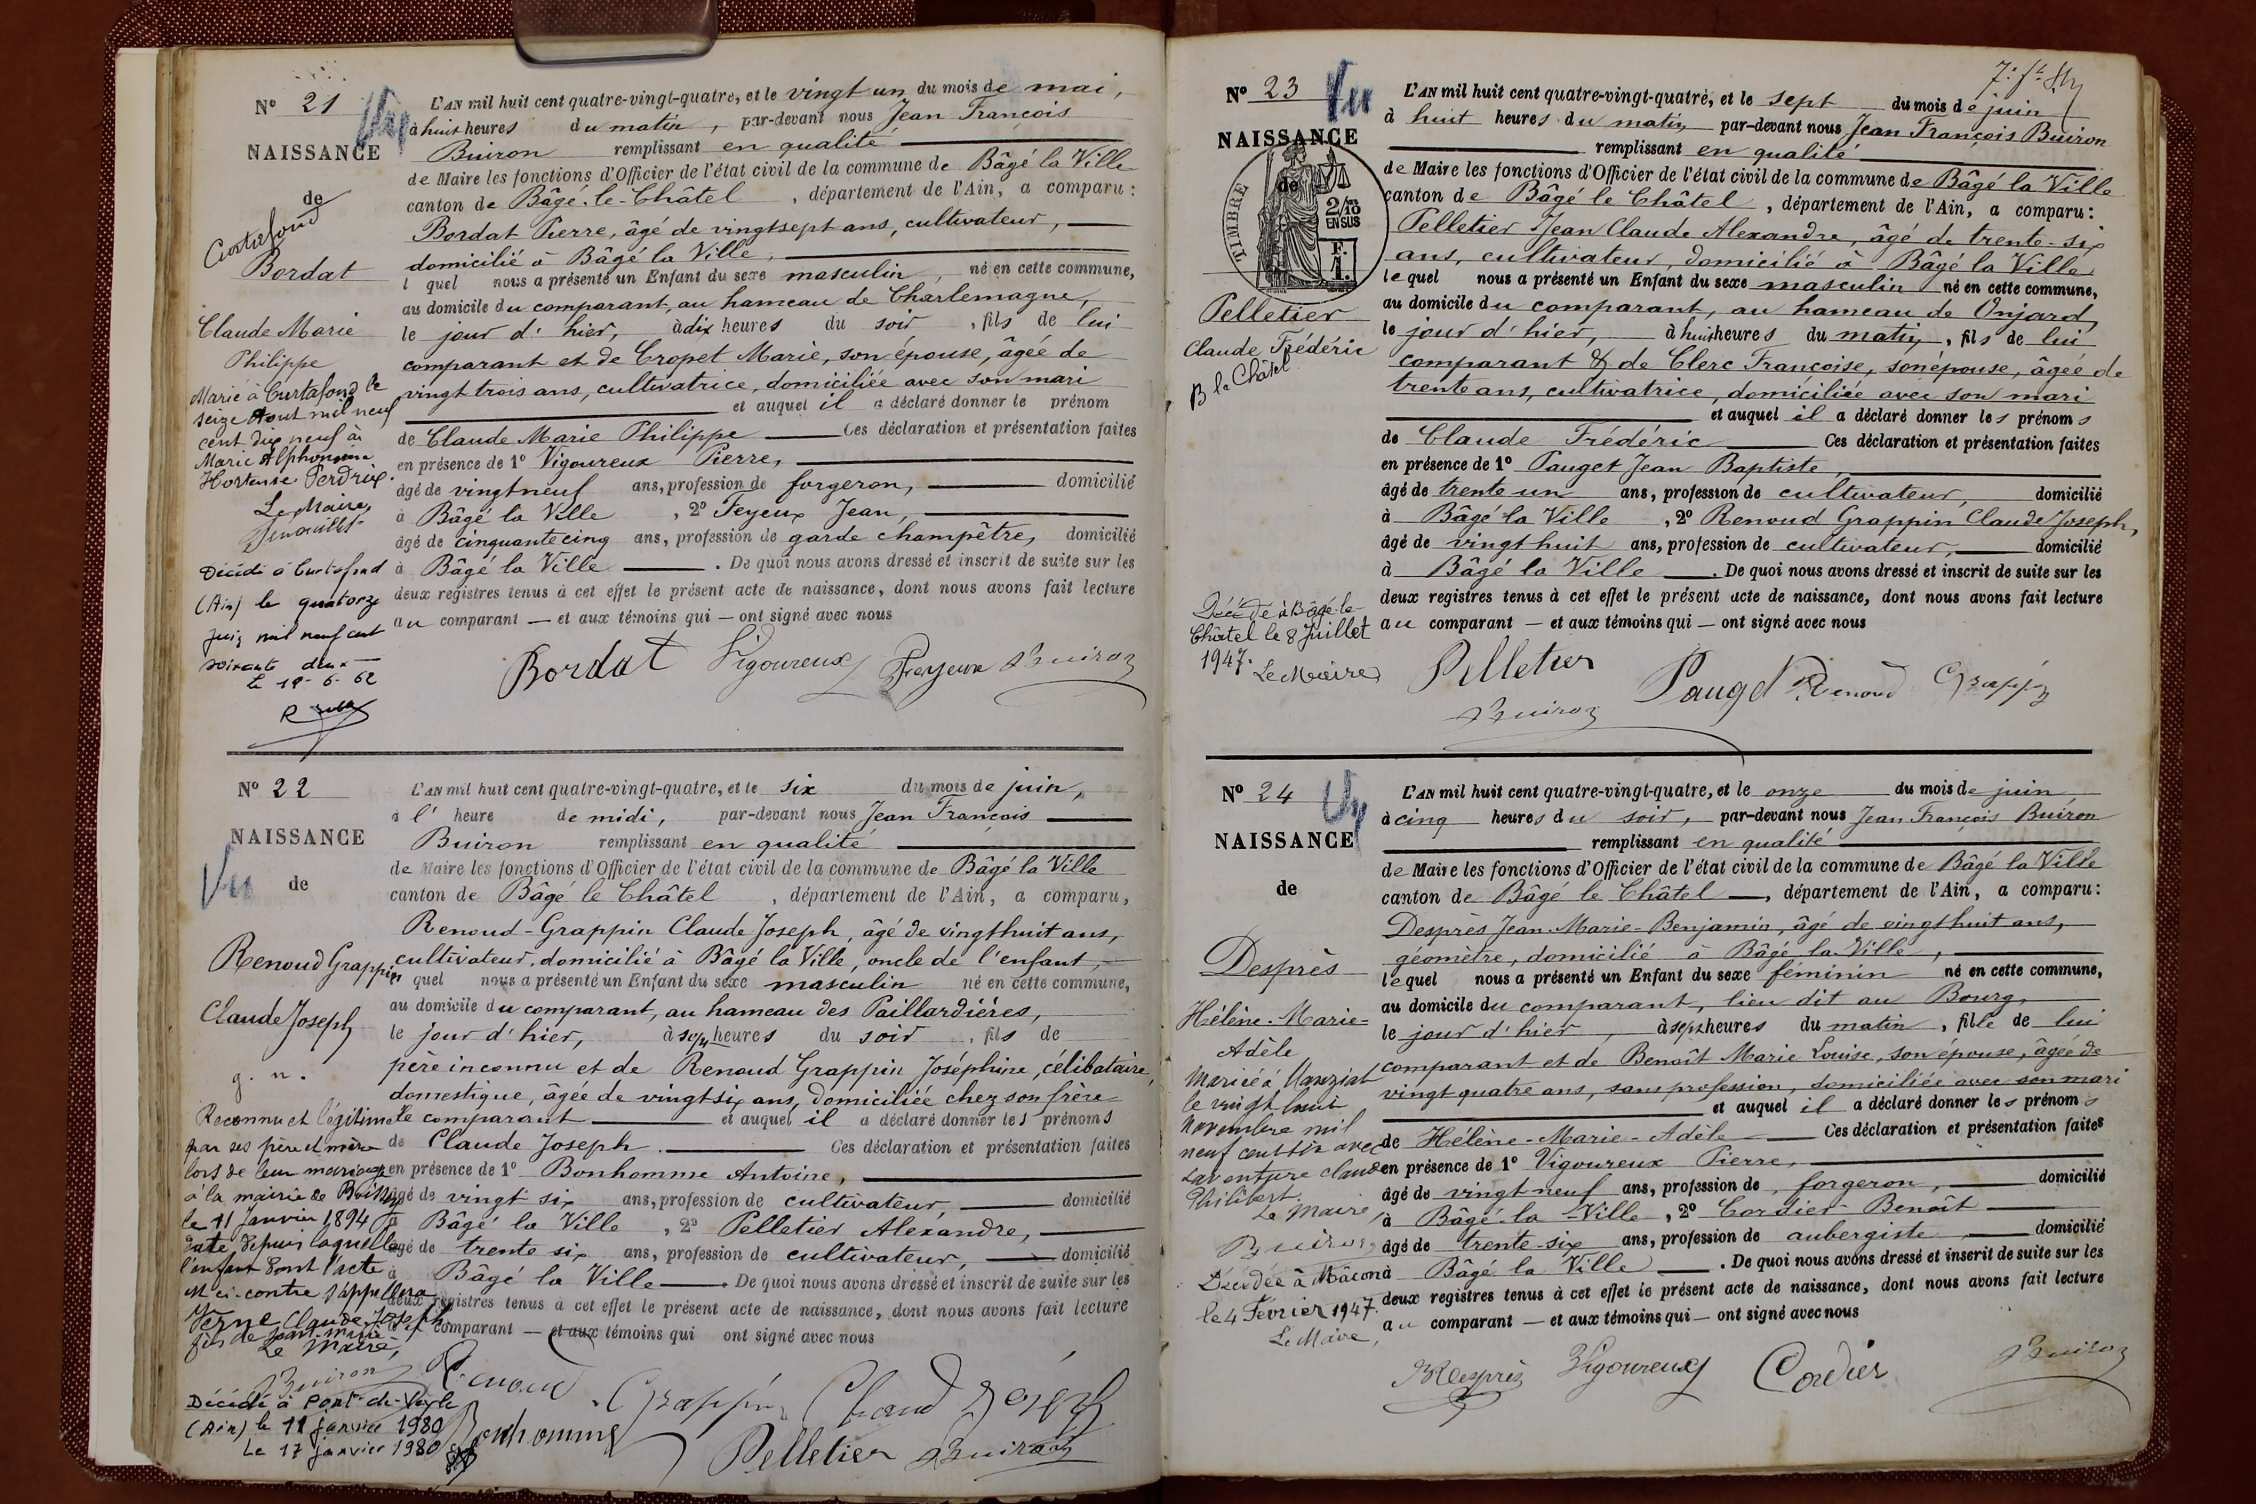 Nº 21
NAISSANCE
de
Curtafond
Bordat
Claude Marie
Philippe
Marié à Curtafond le
seize Aout mil neuf
cent dix neuf à
Marie Alphonsine
Hortense Perdrix.
Le Maire,
Décédé à Curtafond
(Ain) le quatorze
juin mil neuf cent
soixante deux
Le 19-6-62
Vu
L'AN mil huit cent quatre-vingt-quatre, et le vingt un du mois de mai,
à huit heures du matin, par-devant nous Jean François
Buiron remplissant en qualité
de Maire les fonctions d'Officier de l'état civil de la commune de Bâgé la Ville
canton de Bâgé-le-Châtel, département de l'Ain, a comparu:
Bordat Pierre, âgé de vingtsept ans, cultivateur,
domicilié à Bâgé la Ville,
l quel nous a présenté un Enfant du sexe masculin, né en cette commune,
au domicile du comparant, au hameau de Charlemagne,
le jour d'hier, à dix heures du soir, fils de lui
comparant et de Cropet Marie, son épouse, âgée de
vingt trois ans, cultivatrice, domiciliée avec son mari
et auquel il a déclaré donner le prénom
de Claude Marie Philippe Ces déclaration et présentation faites
en présence de 1º Vigoureux Pierre,
âgé de vingtneuf ans, profession de forgeron, domicilié
à Bâgé la Ville, 2º Feyeux Jean,
âgé de cinquantecinq ans, profession de garde champêtre, domicilié
à Bâgé la Ville. De quoi nous avons dressé et inscrit de suite sur les
deux registres tenus à cet effet le présent acte de naissance, dont nous avons fait lecture
au comparant — et aux témoins qui — ont signé avec nous
Bordat Vigoureux Feyeux Buiron
Nº 22
NAISSANCE
Vu de
Renoud Grappin
Claude Joseph
g. n.
Reconnu et légitimé
par ses père et mère
lors de leur mariage
à la mairie de Boissey
le 11 Janvier 1894
date depuis laquelle
l'enfant dont l'acte
est ci-contre s'appellera
Verne Claude Joseph
fils de Jean-Marie
Le Maire,
Buiron
Décédé à Pont-de-Veyle
(Ain) le 11 janvier 1980
Le 17 janvier 1980
L'AN mil huit cent quatre-vingt-quatre, et le six du mois de juin,
à l' heure de midi, par-devant nous Jean François
Buiron remplissant en qualité
de Maire les fonctions d'Officier de l'état civil de la commune de Bâgé la Ville
canton de Bâgé le Châtel, département de l'Ain, a comparu,
Renoud-Grappin Claude Joseph, âgé de vingthuit ans,
cultivateur, domicilié à Bâgé la Ville, oncle de l'enfant,
quel nous a présenté un Enfant du sexe masculin né en cette commune,
au domicile du comparant, au hameau des Paillardières,
le jour d'hier, à sept heures du soir, fils de
père inconnu et de Renoud Grappin Joséphine, célibataire,
domestique, âgée de vingtsix ans, domiciliée chez son frère
le comparant et auquel il a déclaré donner les prénoms
de Claude Joseph. Ces déclaration et présentation faites
en présence de 1º Bonhomme Antoine,
âgé de vingt six ans, profession de cultivateur, domicilié
à Bâgé la Ville, 2º Pelletier Alexandre,
âgé de trente six ans, profession de cultivateur, domicilié
à Bâgé la Ville. De quoi nous avons dressé et inscrit de suite sur les
deux registres tenus à cet effet le présent acte de naissance, dont nous avons fait lecture
au comparant — et aux témoins qui ont signé avec nous
Renoud Grappin Claud Joseph
Bonhomme Pelletier Buiron
Nº 23
NAISSANCE
de
TIMBRE
2/10
EN SUS
F.
1.
Pelletier
Claude Frédéric
B le Châtel
Décédé à Bâgé-le-
Châtel le 8 Juillet
1947.
Le Maire
Vu
L'AN mil huit cent quatre-vingt-quatre, et le sept du mois de juin
à huit heures du matin par-devant nous Jean François Buiron
remplissant en qualité
de Maire les fonctions d'Officier de l'état civil de la commune de Bâgé la Ville
canton de Bâgé le Châtel, département de l'Ain, a comparu:
Pelletier Jean Claude Alexandre, âgé de trente-six
ans, cultivateur, domicilié à Bâgé la Ville
lequel nous a présenté un Enfant du sexe masculin né en cette commune,
au domicile du comparant, au hameau de Onjard,
le jour d'hier, à huit heures du matin, fils de lui
comparant & de Clerc Françoise, son épouse, âgée de
trente ans, cultivatrice, domiciliée avec son mari
et auquel il a déclaré donner les prénoms
de Claude Frédéric Ces déclaration et présentation faites
en présence de 1º Pauget Jean Baptiste,
âgé de trente un ans, profession de cultivateur, domicilié
à Bâgé la Ville, 2º Renoud Grappin Claude Joseph,
âgé de vingt huit ans, profession de cultivateur, domicilié
à Bâgé la Ville. De quoi nous avons dressé et inscrit de suite sur les
deux registres tenus à cet effet le présent acte de naissance, dont nous avons fait lecture
au comparant — et aux témoins qui — ont signé avec nous
Pelletier Pauget Renoud Grappin
Buiron
Nº 24
NAISSANCE
de
Desprès
Hélène-Marie-
Adèle
Mariée à Manziat
le vingt huit
novembre mil
neuf cent six avec
Laventure Claude
Philibert.
Le Maire,
Buiron
Décédée à Mâcon
le 4 Février 1947.
Le Maire,
Vu
L'AN mil huit cent quatre-vingt-quatre, et le onze du mois de juin
à cinq heures du soir, par-devant nous Jean François Buiron
remplissant en qualité
de Maire les fonctions d'Officier de l'état civil de la commune de Bâgé la Ville
canton de Bâgé le Châtel, département de l'Ain, a comparu:
Desprès Jean-Marie-Benjamin, âgé de vingthuit ans,
géomètre, domicilié à Bâgé-la-Ville,
lequel nous a présenté un Enfant du sexe féminin né en cette commune,
au domicile du comparant, lieu dit au Bourg,
le jour d'hier, à sept heures du matin, fille de lui
comparant et de Benoît Marie Louise, son épouse, âgée de
vingt quatre ans, sans profession, domiciliée avec son mari
et auquel il a déclaré donner les prénoms
de Hélène-Marie-Adèle Ces déclaration et présentation faites
en présence de 1º Vigoureux Pierre,
âgé de vingt neuf ans, profession de forgeron, domicilié
à Bâgé-la-Ville, 2º Cordier Benoît
âgé de trente-six ans, profession de aubergiste domicilié
à Bâgé la Ville. De quoi nous avons dressé et inscrit de suite sur les
deux registres tenus à cet effet le présent acte de naissance, dont nous avons fait lecture
au comparant — et aux témoins qui — ont signé avec nous
BDesprès Vigoureux Cordier Buiron